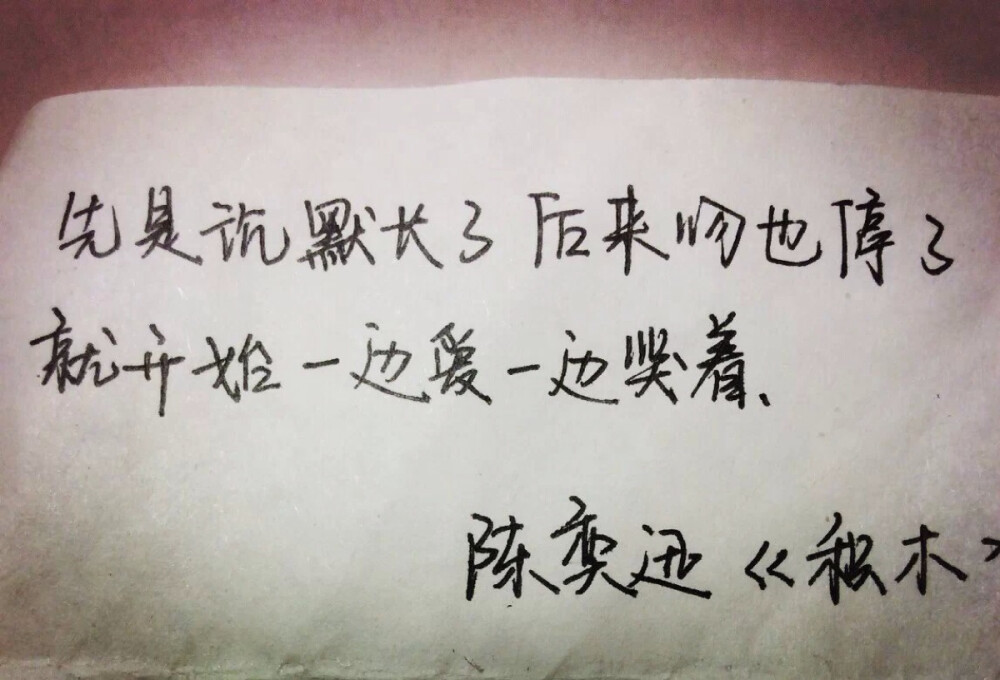 先是沉默长了 后来吻也停了
就开始一边爱一边哭着、
陈奕迅《积木》